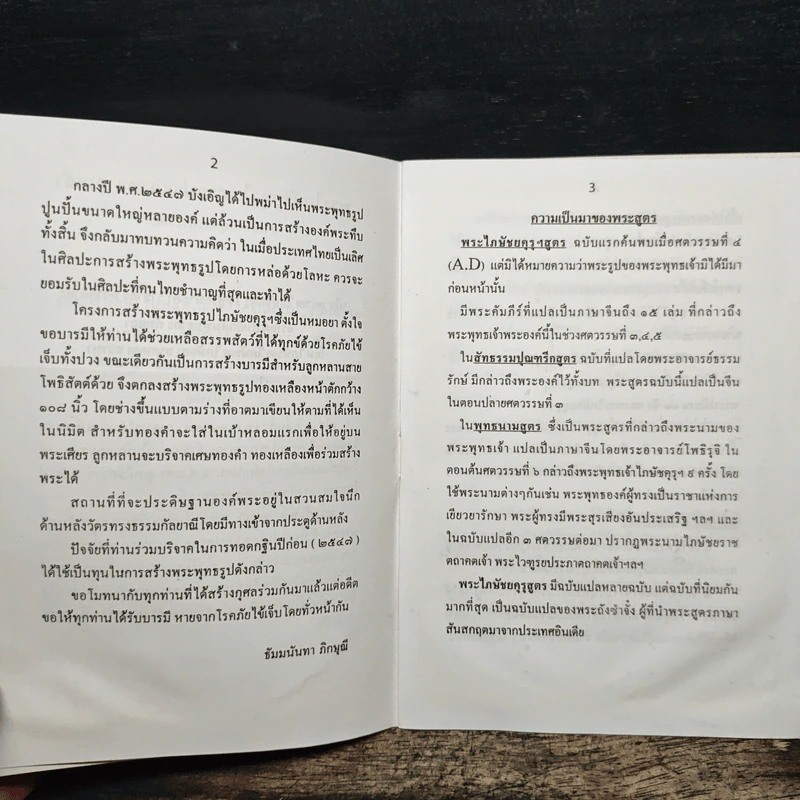 2
กลางปี พ.ศ.๒๕๔๗ บังเอิญได้ไปพม่าไปเห็นพระพุทธรูป
ปูนปั้นขนาดใหญ่หลายองค์ แต่ล้วนเป็นการสร้างองค์พระทึบ
ทั้งสิ้น จึงกลับมาทบทวนความคิดว่า ในเมื่อประเทศไทยเป็นเลิศ
ในศิลปะการสร้างพระพุทธรูปโดยการหล่อด้วยโลหะ ควรจะ
ยอมรับในศิลปะที่คนไทยชำนาญที่สุดและทำได้
โครงการสร้างพระพุทธรูปไภษัชยคุรุฯซึ่งเป็นหมอยา ตั้งใจ
ขอบารมีให้ท่านได้ช่วยเหลือสรรพสัตว์ที่ได้ทุกข์ด้วยโรคภัยไข้
เจ็บทั้งปวง ขณะเดียวกันเป็นการสร้างบารมีสำหรับลูกหลานสาย
โพธิสัตต์ด้วย จึงตกลงสร้างพระพุทธรูปทองเหลืองหน้าตักกว้าง
๑๐๘ นิ้ว โดยช่างขึ้นแบบตามร่างที่อาตมาเขียนให้ตามที่ได้เห็น
ในนิมิต สำหรับทองคำจะใส่ในเบ้าหลอมแรกเพื่อให้อยู่บน
พระเศียร ลูกหลานจะบริจาคเศษทองคำ ทองเหลืองเพื่อร่วมสร้าง
พระได้
สถานที่ที่จะประดิษฐานองค์พระอยู่ในสวนสมใจนึก
ด้านหลังวัตรทรงธรรมกัลยาณีโดยมีทางเข้าจากประตูด้านหลัง
ปัจจัยที่ท่านร่วมบริจาคในการทอดกฐินปีก่อน (๒๕๔๗)
ได้ใช้เป็นทุนในการสร้างพระพุทธรูปดังกล่าว
ขอโมทนากับทุกท่านที่ได้สร้างกุศลร่วมกันมาแล้วแต่อดีต
ขอให้ทุกท่านได้รับบารมี หายจากโรคภัยไข้เจ็บโดยทั่วหน้ากัน
ธัมมนันทา ภิกษุณี
3
ความเป็นมาของพระสูตร
พระไภัชยคุรุฯสูตร ฉบับแรกค้นพบเมื่อศตวรรษที่ ๔
(A.D) แต่มิได้หมายความว่าพระรูปของพระพุทธเจ้ามิได้มีมา
ก่อนหน้านั้น
มีพระคัมภีร์ที่แปลเป็นภาษาจีนถึง ๑๕ เล่ม ที่กล่าวถึง
พระพุทธเจ้าพระองค์นี้ในช่วงศตวรรษที่ ๓,๔,๕
ในสัทธรรมปุณฑรีกสูตร ฉบับที่แปลโดยพระอาจารย์ธรรม
รักษ์ มีกล่าวถึงพระองค์ไว้ทั้งบท พระสูตรฉบับนี้แปลเป็นจีน
ในตอนปลายศตวรรษที่ ๓
ในพุทธนามสูตร ซึ่งเป็นพระสูตรที่กล่าวถึงพระนามของ
พระพุทธเจ้า แปลเป็นภาษาจีนโดยพระอาจารย์โพธิรุจิ ใน
ตอนต้นศตวรรษที่ ๖ กล่าวถึงพระพุทธเจ้าไภัชคุรุฯ ๙ ครั้ง โดย
ใช้พระนามต่างๆกันเช่น พระพุทธองค์ผู้ทรงเป็นราชาแห่งการ
เยียวยารักษา พระผู้ทรงมีพระสุรเสียงอันประเสริฐ ฯลฯ และ
ในฉบับแปลอีก ๓ ศตวรรษต่อมา ปรากฏพระนามไภัชยราช
ตถาคตเจ้า พระไวฑูรยประภาตถาคตเจ้าฯลฯ
พระไภัชยคุรุสูตร มีฉบับแปลหลายฉบับ แต่ฉบับที่นิยมกัน
มากที่สุด เป็นฉบับแปลของพระถังซำจั๋ง ผู้ที่นำพระสูตรภาษา
สันสกฤตมาจากประเทศอินเดีย